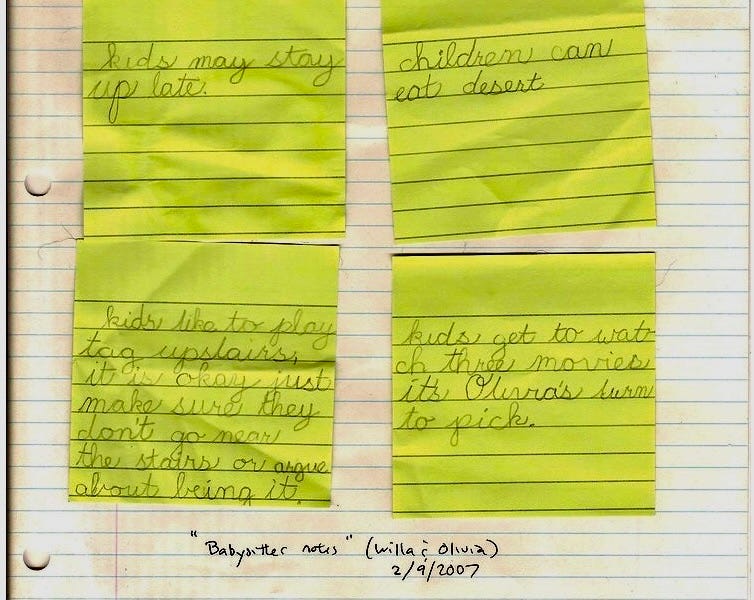 kids may stay
up late.
children can
eat desert
kids like to play
tag upstairs,
it is okay just
make sure they
don't go near
the stairs or argue
about being it.
kids get to wat
ch three movies
it's Olivia's turn
to pick.
"Babysitter notes" (Willa & Olivia)
2/9/2007